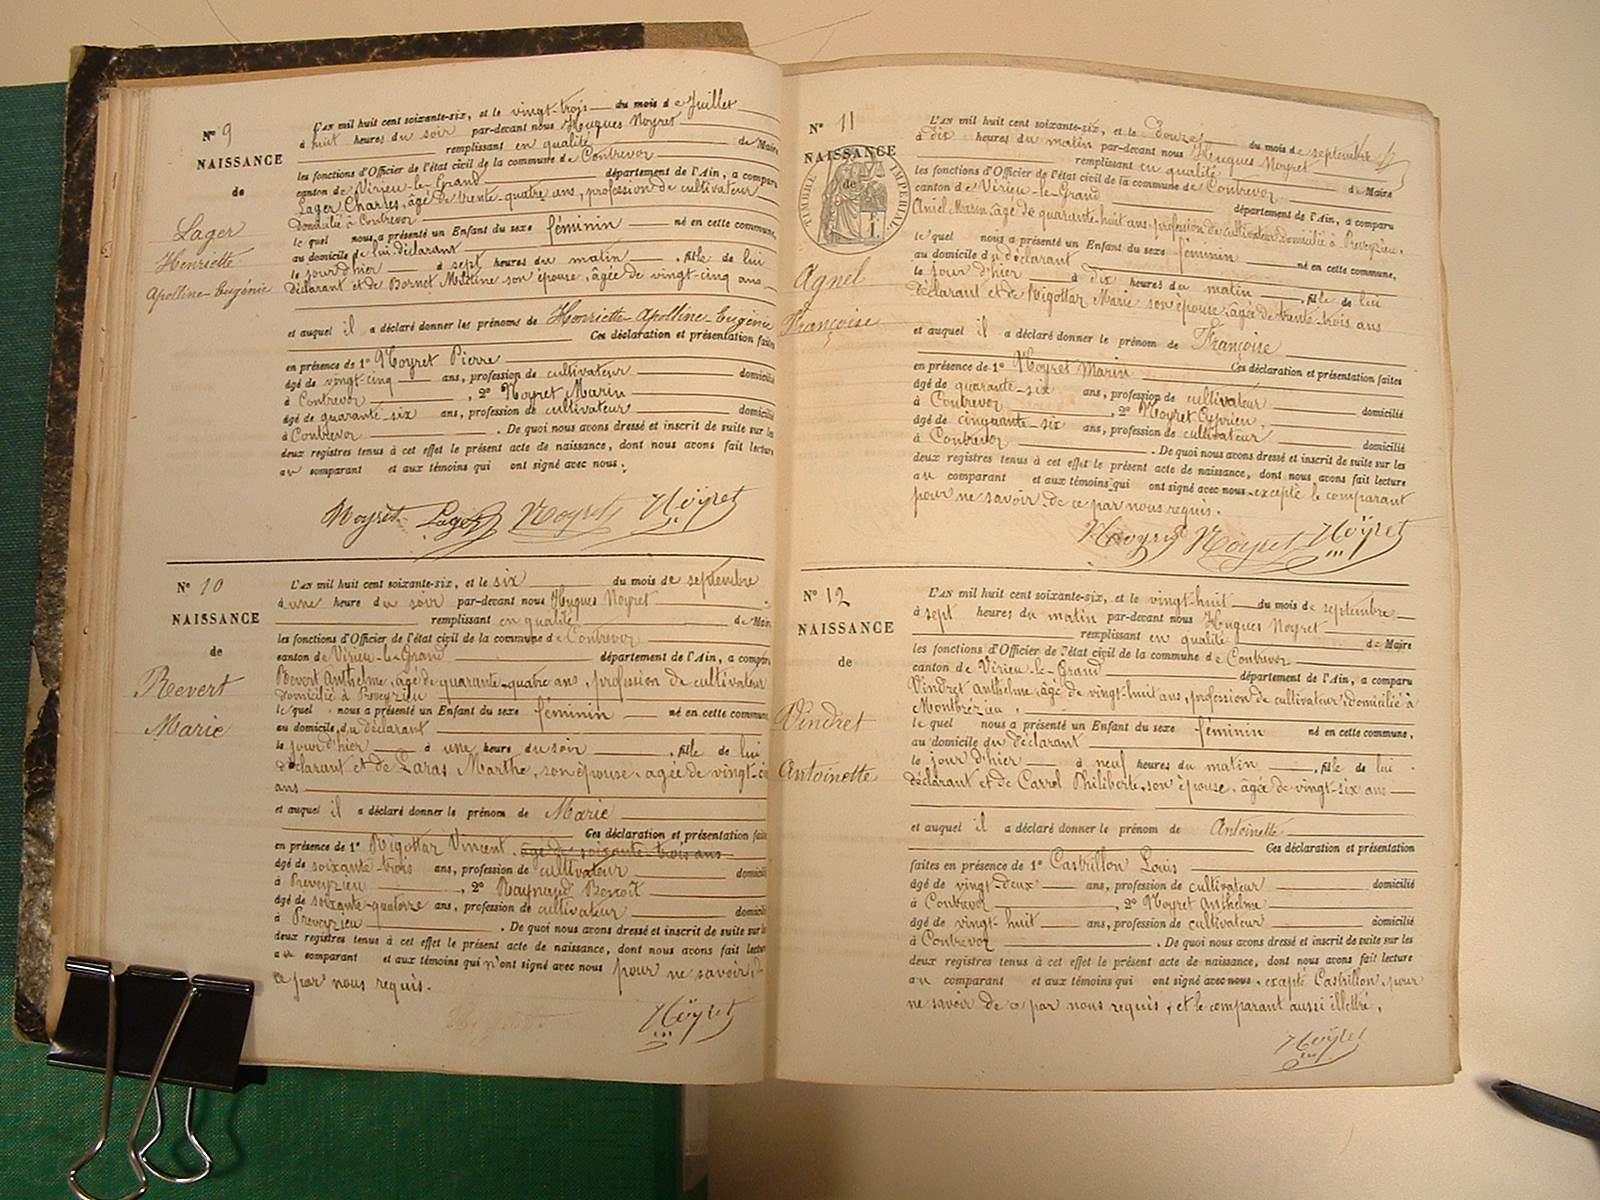 N° 9
NAISSANCE
de
Lager
Henriette
Apolline-Eugénie
L'AN mil huit cent soixante-six, et le vingt-trois du mois de Juillet
à huit heures du soir par-devant nous Hugues Noyret
remplissant en qualité de Maire
les fonctions d'Officier de l'état civil de la commune de Contrevoz
canton de Virieu-le-Grand département de l'Ain, a comparu
Lager Charles, âgé de trente-quatre ans, profession de cultivateur
domicilié à Contrevoz
le quel nous a présenté un Enfant du sexe féminin né en cette commune,
au domicile de lui déclarant
le jour d'hier à sept heures du matin, fille de lui
déclarant et de Bornet Mélitine son épouse, âgée de vingt-cinq ans
et auquel il a déclaré donner les prénoms de Henriette-Apolline-Eugénie
Ces déclaration et présentation faites
en présence de 1° Noyret Pierre
âgé de vingt-cinq ans, profession de cultivateur domicilié
à Contrevoz, 2° Noyret Marin
âgé de quarante-six ans, profession de cultivateur domicilié
à Contrevoz. De quoi nous avons dressé et inscrit de suite sur les
deux registres tenus à cet effet le présent acte de naissance, dont nous avons fait lecture
au comparant et aux témoins qui ont signé avec nous.
Noyret Lager Noyret Noyret
N° 10
NAISSANCE
de
Revert
Marie
L'AN mil huit cent soixante-six, et le six du mois de septembre
à une heure du soir par-devant nous Hugues Noyret
remplissant en qualité de Maire
les fonctions d'Officier de l'état civil de la commune de Contrevoz
canton de Virieu-le-Grand département de l'Ain, a comparu
Revert Anthelme, âgé de quarante-quatre ans, profession de cultivateur
domicilié à Preveyzieu
le quel nous a présenté un Enfant du sexe féminin né en cette commune,
au domicile du déclarant
le jour d'hier à une heure du soir, fille de lui
déclarant et de Laras Marthe, son épouse, agée de vingt-
ans
et auquel il a déclaré donner le prénom de Marie
Ces déclaration et présentation faites
en présence de 1° Rigottaz Vincent, âgé de soixante-trois ans
âgé de soixante trois ans, profession de cultivateur domicilié
à Preveyzieu, 2° Raynaud Benoît
âgé de soixante-quatorze ans, profession de cultivateur domicilié
à Preveyzieu. De quoi nous avons dressé et inscrit de suite sur les
deux registres tenus à cet effet le présent acte de naissance, dont nous avons fait lecture
au comparant et aux témoins qui n'ont signé avec nous pour ne savoir, de
ce par nous requis.
Noyret
N° 11
NAISSANCE
de
TIMBRE IMPERIAL
Agnel
Françoise
L'AN mil huit cent soixante-six, et le douze du mois de septembre
à dix heures du matin par-devant nous Hugues Noyret
remplissant en qualité de Maire
les fonctions d'Officier de l'état civil de la commune de Contrevoz
canton de Virieu-le-Grand département de l'Ain, a comparu
Aniel Marin, âgé de quarante-huit ans, profession de cultivateur, domicilié à Preveyzieu,
le quel nous a présenté un Enfant du sexe féminin né en cette commune,
au domicile du déclarant
le jour d'hier à dix heures du matin, fille de lui
déclarant et de Rigottaz Marie son épouse, âgée de trente-trois ans
et auquel il a déclaré donner le prénom de Françoise
Ces déclaration et présentation faites
en présence de 1° Noyret Marin
âgé de quarante-six ans, profession de cultivateur
à Contrevoz, 2° Noyret Cyprien, domicilié
âgé de cinquante-six ans, profession de cultivateur
à Contrevoz domicilié
. De quoi nous avons dressé et inscrit de suite sur les
deux registres tenus à cet effet le présent acte de naissance, dont nous avons fait lecture
au comparant et aux témoins qui ont signé avec nous excepté le comparant
pour ne savoir, de ce par nous requis.
Noyret Noyret Noyret
N° 12
NAISSANCE
de
Vindret
Antoinette
L'AN mil huit cent soixante-six, et le vingt-huit du mois de septembre
à sept heures du matin par-devant nous Hugues Noyret
remplissant en qualité de Maire
les fonctions d'Officier de l'état civil de la commune de Contrevoz
canton de Virieu-le-Grand département de l'Ain, a comparu
Vindret Anthelme, âgé de vingt-huit ans, profession de cultivateur, domicilié à
Montbrézieu.
le quel nous a présenté un Enfant du sexe féminin né en cette commune,
au domicile du déclarant
le jour d'hier à neuf heures du matin, fille de lui
déclarant et de Carrel Philiberte, son épouse, âgée de vingt-six ans
et auquel il a déclaré donner le prénom de Antoinette
Ces déclaration et présentation
faites en présence de 1° Castrillon Louis
âgé de vingt-deux ans, profession de cultivateur domicilié
à Contrevoz, 2° Noyret Anthelme
âgé de vingt-huit ans, profession de cultivateur domicilié
à Contrevoz. De quoi nous avons dressé et inscrit de suite sur les
deux registres tenus à cet effet le présent acte de naissance, dont nous avons fait lecture
au comparant et aux témoins qui ont signé avec nous, excepté Castrillon, pour
ne savoir de ce par nous requis, et le comparant aussi illettré.
Noyret